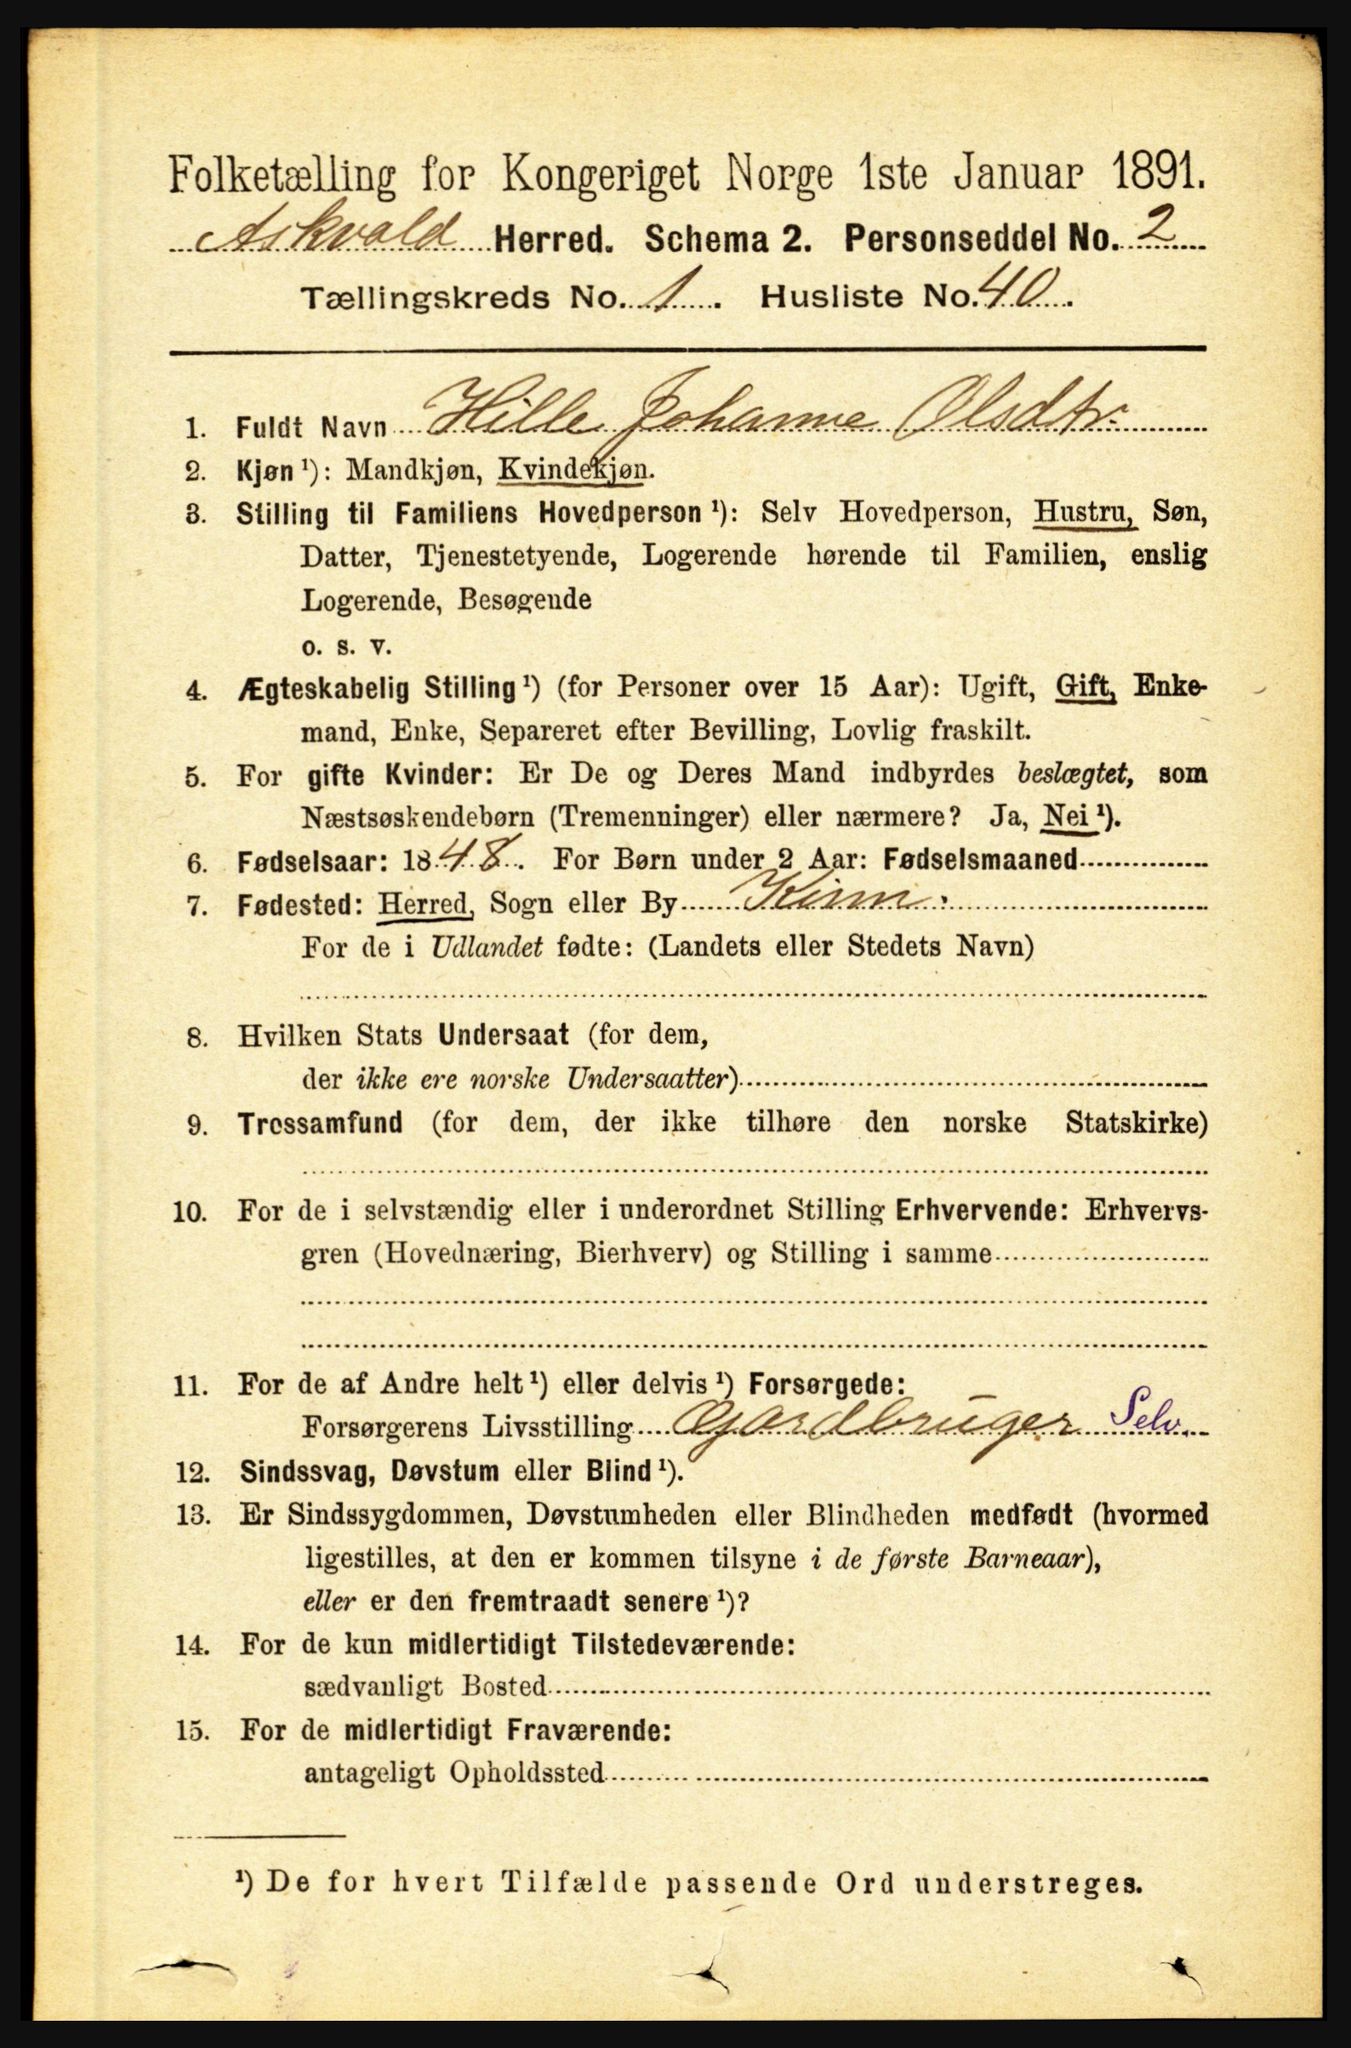 Folketælling for Kongeriget Norge 1ste Januar 1891.
Askvold Herred. Schema 2. Personseddel No. 2
Tællingskreds No. 1. Husliste No. 40.
1. Fuldt Navn Hille Johanne Olsdtr.
2. Kjøn ¹): Mandkjøn, Kvindekjøn.
3. Stilling til Familiens Hovedperson ¹): Selv Hovedperson, Hustru, Søn,
Datter, Tjenestetyende, Logerende hørende til Familien, enslig
Logerende, Besøgende
o. s. v.
4. Ægteskabelig Stilling ¹) (for Personer over 15 Aar): Ugift, Gift, Enke-
mand, Enke, Separeret efter Bevilling, Lovlig fraskilt.
5. For gifte Kvinder: Er De og Deres Mand indbyrdes beslægtet, som
Næstsøskendebørn (Tremenninger) eller nærmere? Ja, Nei ¹).
6. Fødselsaar: 1848. For Børn under 2 Aar: Fødselsmaaned
7. Fødested: Herred, Sogn eller By Kinn.
For de i Udlandet fødte: (Landets eller Stedets Navn)
8. Hvilken Stats Undersaat (for dem,
der ikke ere norske Undersaatter)
9. Trossamfund (for dem, der ikke tilhøre den norske Statskirke)
10. For de i selvstændig eller i underordnet Stilling Erhvervende: Erhvervs-
gren (Hovednæring, Bierhverv) og Stilling i samme
11. For de af Andre helt ¹) eller delvis ¹) Forsørgede:
Forsørgerens Livsstilling Gjardbruger Selv.
12. Sindssvag, Døvstum eller Blind ¹).
13. Er Sindssygdommen, Døvstumheden eller Blindheden medfødt (hvormed
ligestilles, at den er kommen tilsyne i de første Barneaar),
eller er den fremtraadt senere ¹)?
14. For de kun midlertidigt Tilstedeværende:
sædvanligt Bosted
15. For de midlertidigt Fraværende:
antageligt Opholdssted
¹) De for hvert Tilfælde passende Ord understreges.